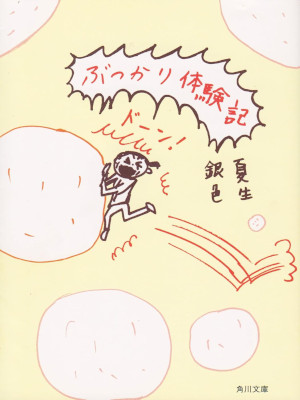 ぶつかり体験記
ドーン!
夏生
銀色
角川文庫